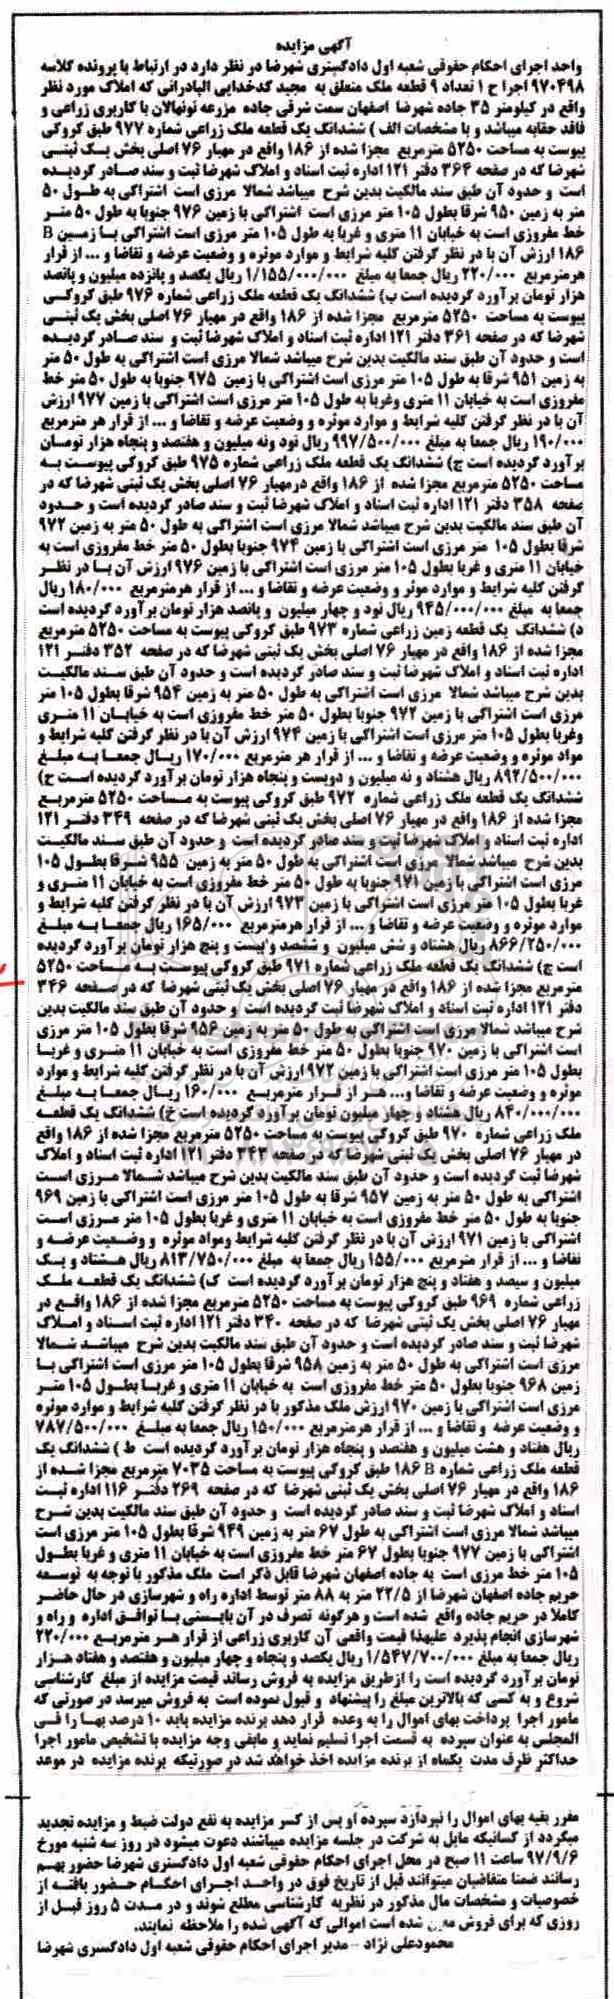 آگهی مزایده
واحد اجرای احکام حقوقی شعبه اول دادگستری شهرضا در نظر دارد در ارتباط با پرونده کلاسه
۹۷۰۴۹۸ اجرا ح ۱ تعداد ۹ قطعه ملک متعلق به مجید کدخدایی الیادرانی که املاک مورد نظر
واقع در کیلومتر ۳۵ جاده شهرضا اصفهان سمت شرقی جاده مزرعه نونهالان با کاربری زراعی و
فاقد حقابه میباشد و با مشخصات الف ) ششدانگ یک قطعه ملک زراعی شماره ۹۷۷ طبق کروکی
پیوست به مساحت ۵۲۵۰ مترمربع مجزا شده از ۱۸۶ واقع در مهیار ۷۶ اصلی بخش یک ثبتی
شهرضا که در صفحه ۳۶۴ دفتر ۱۲۱ اداره ثبت اسناد و املاک شهرضا ثبت و سند صادر گردیده
است و حدود آن طبق سند مالکیت بدین شرح میباشد شمالا مرزی است اشتراکی به طول ۵۰
متر به زمین ۹۵۰ شرقا بطول ۱۰۵ متر مرزی است اشتراکی با زمین ۹۷۶ جنوبا به طول ۵۰ متر
خط مفروزی است به خیابان ۱۱ متری و غربا به طول ۱۰۵ متر مرزی است اشتراکی با زمین B
۱۸۶ ارزش آن با در نظر گرفتن کلیه شرایط و موارد موثره و وضعیت عرضه و تقاضا و ... از قرار
هرمترمربع ۲۲۰/۰۰۰ ریال جمعا به مبلغ ۱/۱۵۵/۰۰۰/۰۰۰ ریال یکصد و پانزده میلیون و پانصد
هزار تومان برآورد گردیده است ب) ششدانگ یک قطعه ملک زراعی شماره ۹۷۶ طبق کروکی
پیوست به مساحت ۵۲۵۰ مترمربع مجزا شده از ۱۸۶ واقع در مهیار ۷۶ اصلی بخش یک ثبتی
شهرضا که در صفحه ۳۶۱ دفتر ۱۲۱ اداره ثبت اسناد و املاک شهرضا ثبت و سند صادر گردیده
است و حدود آن طبق سند مالکیت بدین شرح میباشد شمالا مرزی است اشتراکی به طول ۵۰ متر
به زمین ۹۵۱ شرقا به طول ۱۰۵ متر مرزی است اشتراکی با زمین ۹۷۵ جنوبا به طول ۵۰ متر خط
مفروزی است به خیابان ۱۱ متری وغربا به طول ۱۰۵ متر مرزی است اشتراکی با زمین ۹۷۷ ارزش
آن با در نظر گرفتن کلیه شرایط و موارد موثره و وضعیت عرضه و تقاضا و ... از قرار هر مترمربع
۱۹۰/۰۰۰ ریال جمعا به مبلغ ۹۹۷/۵۰۰/۰۰۰ ریال نود ونه میلیون و هفتصد و پنجاه هزار تومان
برآورد گردیده است ج) ششدانگ یک قطعه ملک زراعی شماره ۹۷۵ طبق کروکی پیوست به
مساحت ۵۲۵۰ مترمربع مجزا شده از ۱۸۶ واقع درمهیار ۷۶ اصلی بخش یک ثبتی شهرضا که در
صفحه ۳۵۸ دفتر ۱۲۱ اداره ثبت اسناد و املاک شهرضا ثبت و سند صادر گردیده است و حدود
آن طبق سند مالکیت بدین شرح میباشد شمالا مرزی است اشتراکی به طول ۵۰ متر به زمین ۹۷۲
شرقا بطول ۱۰۵ متر مرزی است اشتراکی با زمین ۹۷۴ جنوبا بطول ۵۰ متر خط مفروزی است به
خیابان ۱۱ متری و غربا بطول ۱۰۵ متر مرزی است اشتراکی با زمین ۹۷۶ ارزش آن با در نظر
گرفتن کلیه شرایط و موارد موثر و وضعیت عرضه و تقاضا و ... از قرار هرمترمربع ۱۸۰/۰۰۰ ریال
جمعا به مبلغ ۹۴۵/۰۰۰/۰۰۰ ریال نود و چهار میلیون و پانصد هزار تومان برآورد گردیده است
د) ششدانگ یک قطعه زمین زراعی شماره ۹۷۳ طبق کروکی پیوست به مساحت ۵۲۵۰ مترمربع
مجزا شده از ۱۸۶ واقع در مهیار ۷۶ اصلی بخش یک ثبتی شهرضا که در صفحه ۳۵۲ دفتر ۱۲۱
اداره ثبت اسناد و املاک شهرضا ثبت و سند صادر گردیده است و حدود آن طبق سند مالکیت
بدین شرح میباشد شمالا مرزی است اشتراکی به طول ۵۰ متر به زمین ۹۵۴ شرقا بطول ۱۰۵ متر
مرزی است اشتراکی با زمین ۹۷۲ جنوبا بطول ۵۰ متر خط مفروزی است به خیابان ۱۱ متری
وغربا بطول ۱۰۵ متر مرزی است اشتراکی با زمین ۹۷۴ ارزش آن با در نظر گرفتن کلیه شرایط و
مواد موثره و وضعیت عرضه و تقاضا و ... از قرار هر مترمربع ۱۷۰/۰۰۰ ریال جمعا به مبلغ
۸۹۲/۵۰۰/۰۰۰ ریال هشتاد و نه میلیون و دویست و پنجاه هزار تومان برآورد گردیده است ح)
ششدانگ یک قطعه ملک زراعی شماره ۹۷۲ طبق کروکی پیوست به مساحت ۵۲۵۰ مترمربع
مجزا شده از ۱۸۶ واقع در مهیار ۷۶ اصلی بخش یک ثبتی شهرضا که در صفحه ۳۴۹ دفتر ۱۲۱
اداره ثبت اسناد و املاک شهرضا ثبت و سند صادر گردیده است و حدود آن طبق سند مالکیت
بدین شرح میباشد شمالا مرزی است اشتراکی به طول ۵۰ متر به زمین ۹۵۵ شرقا بطول ۱۰۵
مرزی است اشتراکی با زمین ۹۷۱ جنوبا به طول ۵۰ متر خط مفروزی است به خیابان ۱۱ متری و
غربا بطول ۱۰۵ متر مرزی است اشتراکی با زمین ۹۷۳ ارزش آن با در نظر گرفتن کلیه شرایط و
موارد موثره و وضعیت عرضه و تقاضا و ... از قرار هرمترمربع ۱۶۵/۰۰۰ ریال جمعا به مبلغ
۸۶۶/۲۵۰/۰۰۰ ریال هشتاد و شش میلیون و ششصد و بیست و پنج هزار تومان برآورد گردیده
است چ) ششدانگ یک قطعه ملک زراعی شماره ۹۷۱ طبق کروکی پیوست به مساحت ۵۲۵۰
مترمربع مجزا شده از ۱۸۶ واقع در مهیار ۷۶ اصلی بخش یک ثبتی شهرضا که در صفحه ۳۴۶
دفتر ۱۲۱ اداره ثبت اسناد و املاک شهرضا ثبت گردیده است و حدود آن طبق سند مالکیت بدین
شرح میباشد شمالا مرزی است اشتراکی به طول ۵۰ متر به زمین ۹۵۶ شرقا بطول ۱۰۵ متر مرزی
است اشتراکی با زمین ۹۷۰ جنوبا بطول ۵۰ متر خط مفروزی است به خیابان ۱۱ متری و غربا
بطول ۱۰۵ متر مرزی است اشتراکی با زمین ۹۷۲ ارزش آن با در نظر گرفتن کلیه شرایط و موارد
موثره و وضعیت عرضه و تقاضا و... هر از قرار مترمربع ۱۶۰/۰۰۰ ریال جمعا به مبلغ
۸۴۰/۰۰۰/۰۰۰ ریال هشتاد و چهار میلیون تومان برآورد گردیده است خ) ششدانگ یک قطعه
ملک زراعی شماره ۹۷۰ طبق کروکی پیوست به مساحت ۵۲۵۰ مترمربع مجزا شده از ۱۸۶ واقع
در مهیار ۷۶ اصلی بخش یک ثبتی شهرضا که در صفحه ۳۴۳ دفتر ۱۲۱ اداره ثبت اسناد و املاک
شهرضا ثبت گردیده است و حدود آن طبق سند مالکیت بدین شرح میباشد شمالا مرزی است
اشتراکی به طول ۵۰ متر به زمین ۹۵۷ شرقا به طول ۱۰۵ متر مرزی است اشتراکی با زمین ۹۶۹
جنوبا به طول ۵۰ متر خط مفروزی است به خیابان ۱۱ متری و غربا بطول ۱۰۵ متر مرزی است
اشتراکی با زمین ۹۷۱ ارزش آن با در نظر گرفتن کلیه شرایط ومواد موثره و وضعیت عرضه و
تقاضا و ... از قرار مترمربع ۱۵۵/۰۰۰ ریال جمعا به مبلغ ۸۱۳/۷۵۰/۰۰۰ ریال هشتاد و یک
میلیون و سیصد و هفتاد و پنج هزار تومان برآورد گردیده است ک) ششدانگ یک قطعه ملک
زراعی شماره ۹۶۹ طبق کروکی پیوست به مساحت ۵۲۵۰ مترمربع مجزا شده از ۱۸۶ واقع در
مهیار ۷۶ اصلی بخش یک ثبتی شهرضا که در صفحه ۳۴۰ دفتر ۱۲۱ اداره ثبت اسناد و املاک
شهرضا ثبت و سند صادر گردیده است و حدود آن طبق سند مالکیت بدین شرح میباشد شمالا
مرزی است اشتراکی به طول ۵۰ متر به زمین ۹۵۸ شرقا بطول ۱۰۵ متر مرزی است اشتراکی با
زمین ۹۶۸ جنوبا بطول ۵۰ متر خط مفروزی است به خیابان ۱۱ متری و غربا بطول ۱۰۵ متر
مرزی است اشتراکی با زمین ۹۷۰ ارزش ملک مذکور با در نظر گرفتن کلیه شرایط و موارد موثره
و وضعیت عرضه و تقاضا و ... از قرار هرمترمربع ۱۵۰/۰۰۰ ریال جمعا به مبلغ ۷۸۷/۵۰۰/۰۰۰
ریال هفتاد و هشت میلیون و هفتصد و پنجاه هزار تومان برآورد گردیده است ط ) ششدانگ یک
قطعه ملک زراعی شماره ۱۸۶ B طبق کروکی پیوست به مساحت ۷۰۳۵ مترمربع مجزا شده از
۱۸۶ واقع در مهیار ۷۶ اصلی بخش یک ثبتی شهرضا که در صفحه ۲۶۹ دفتر ۱۱۶ اداره ثبت
اسناد و املاک شهرضا ثبت و سند صادر گردیده است و حدود آن طبق سند مالکیت بدین شرح
میباشد شمالا مرزی است اشتراکی به طول ۶۷ متر به زمین ۹۴۹ شرقا بطول ۱۰۵ متر مرزی است
اشتراکی با زمین ۹۷۷ جنوبا بطول ۶۷ متر خط مفروزی است به خیابان ۱۱ متری و غربا بطول
۱۰۵ متر خط مرزی است به جاده اصفهان شهرضا قابل ذکر است ملک مذکور با توجه به توسعه
حریم جاده اصفهان شهرضا از ۲۲/۵ متر به ۸۸ متر توسط اداره راه و شهرسازی در حال حاضر
کاملا در حریم جاده واقع شده است و هرگونه تصرف در آن بایستی با توافق اداره و راه و
شهرسازی انجام پذیرد علیهذا قیمت واقعی آن کاربری زراعی از قرار هر مترمربع ۲۲۰/۰۰۰
ریال جمعا به مبلغ ۱/۵۴۷/۷۰۰/۰۰۰ ریال یکصد و پنجاه و چهار میلیون و هفتصد و هفتاد هزار
تومان برآورد گردیده است را ازطریق مزایده به فروش رساند قیمت مزایده از مبلغ کارشناسی
شروع و به کسی که بالاترین مبلغ را پیشنهاد و قبول نموده است به فروش میرسد در صورتی که
مامور اجرا پرداخت بهای اموال را به وعده قرار دهد برنده مزایده باید ۱۰ درصد بها را فی
المجلس به عنوان سپرده به قسمت اجرا تسلیم نماید و مابقی وجه مزایده با تشخیص مامور اجرا
حداکثر ظرف مدت یکماه از برنده مزایده اخذ خواهد شد در صورتیکه برنده مزایده در موعد
مقرر بقیه بهای اموال را نپردازد سپرده او پس از کسر مزایده به نفع دولت ضبط و مزایده تجدید
میگردد از کسانیکه مایل به شرکت در جلسه مزایده میباشند دعوت میشود در روز سه شنبه مورخ
۹۷/۹/۶ ساعت ۱۱ صبح در محل اجرای احکام حقوقی شعبه اول دادگستری شهرضا حضور بهم
رسانند ضمنا متقاضیان میتوانند قبل از تاریخ فوق در واحد اجرای احکام حضور یافته از
خصوصیات و مشخصات مال مذکور در نظریه کارشناسی مطلع شوند و در مدت ۵ روز قبل از
روزی که برای فروش شده است اموالی که آگهی شده را ملاحظه نمایند.
محمودعلی نژاد - مدیر اجرای احکام حقوقی شعبه اول دادگستری شهرضا